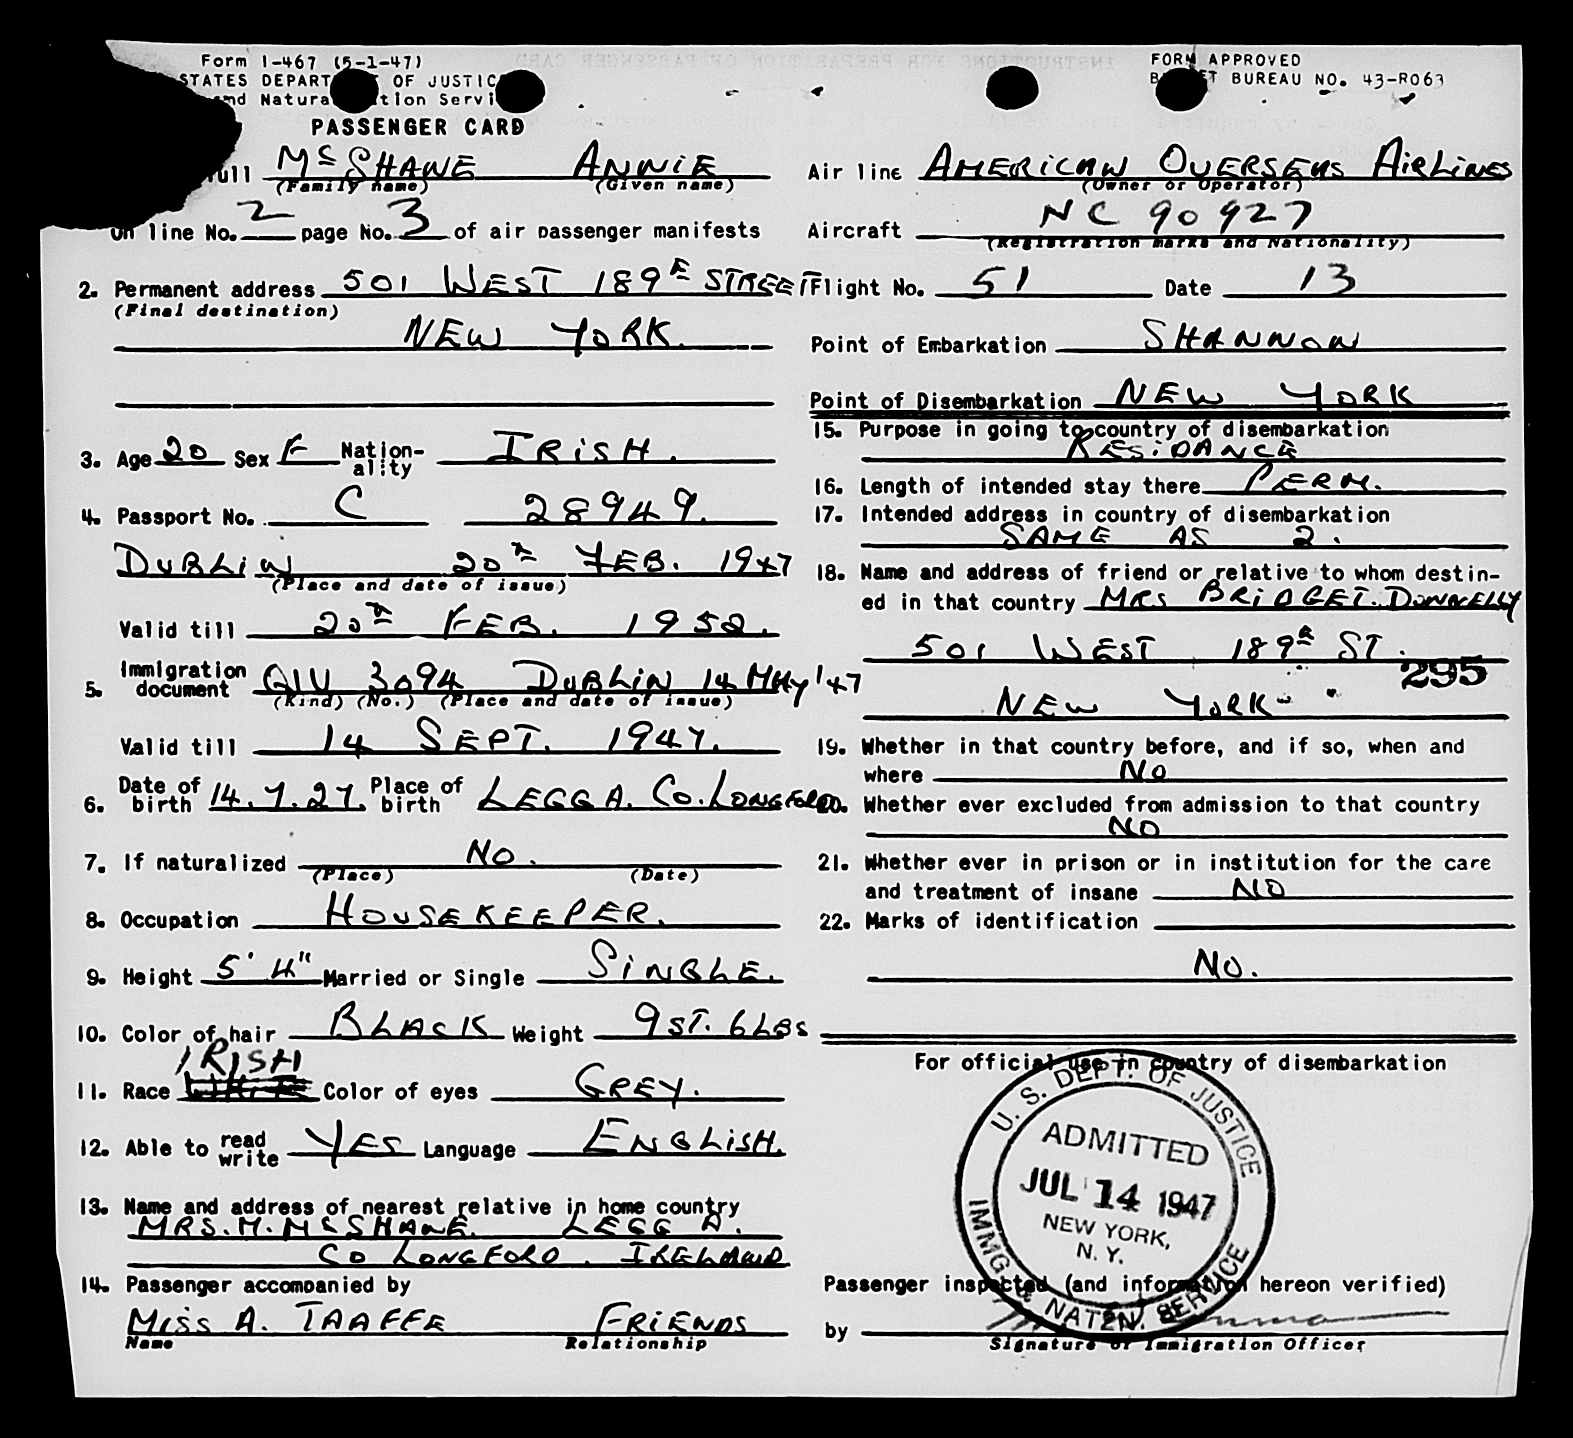 Form I-467 (5-1-47)
STATES DEPART OF JUSTIC
and Natura tion Servi
PASSENGER CARD
FORM APPROVED
B ET BUREAU NO. 43-R063
full McSHANE ANNIE
(Family name) (Given name)
On line No. 2 page No. 3 of air passenger manifests
2. Permanent address 501 WEST 189E STREET
(Final destination)
NEW YORK.
3. Age 20 Sex F Nation-ality IRISH.
4. Passport No. C 28949.
DUBLIN 20th FEB. 1947
(Place and date of issue)
Valid till 20th FEB. 1952.
5. Immigration document QIV 3094 DUBLIN 14 MAY '47
(Kind) (No.) (Place and date of issue)
Valid till 14 SEPT. 1947.
6. Date of birth 14.7.27. Place of birth LEGGA. CO. LONGFORD
7. If naturalized NO.
(Place) (Date)
8. Occupation HOUSEKEEPER.
9. Height 5' 4" Married or Single SINGLE.
10. Color of hair BLACK Weight 9 ST. 6 LBS
IRISH
11. Race WHITE Color of eyes GREY.
12. Able to read write YES Language ENGLISH.
13. Name and address of nearest relative in home country
MRS. M. McSHANE. LEGGA.
CO LONGFORD. IRELAND
14. Passenger accompanied by
MISS A. TAAFFE FRIENDS
Name Relationship
Air line AMERICAN OVERSEAS AIRLINES
(Owner or Operator)
Aircraft NC 90927
(Registration marks and Nationality)
Flight No. 51 Date 13
Point of Embarkation SHANNON
Point of Disembarkation NEW YORK
15. Purpose in going to country of disembarkation
RESIDANCE
16. Length of intended stay there PERM.
17. Intended address in country of disembarkation
SAME AS 2.
18. Name and address of friend or relative to whom destin-
ed in that country MRS BRIDGET. DONNELLY
501 WEST 189th ST.
295
NEW YORK
19. Whether in that country before, and if so, when and
where NO
20. Whether ever excluded from admission to that country
NO
21. Whether ever in prison or in institution for the care
and treatment of insane NO
22. Marks of identification
NO.
For official use in country of disembarkation
U. S. DEPT. OF JUSTICE
ADMITTED
JUL 14 1947
NEW YORK,
N. Y.
IMMG. & NATZN. SERVICE
Passenger inspected (and information hereon verified)
by
Signature of Immigration Officer